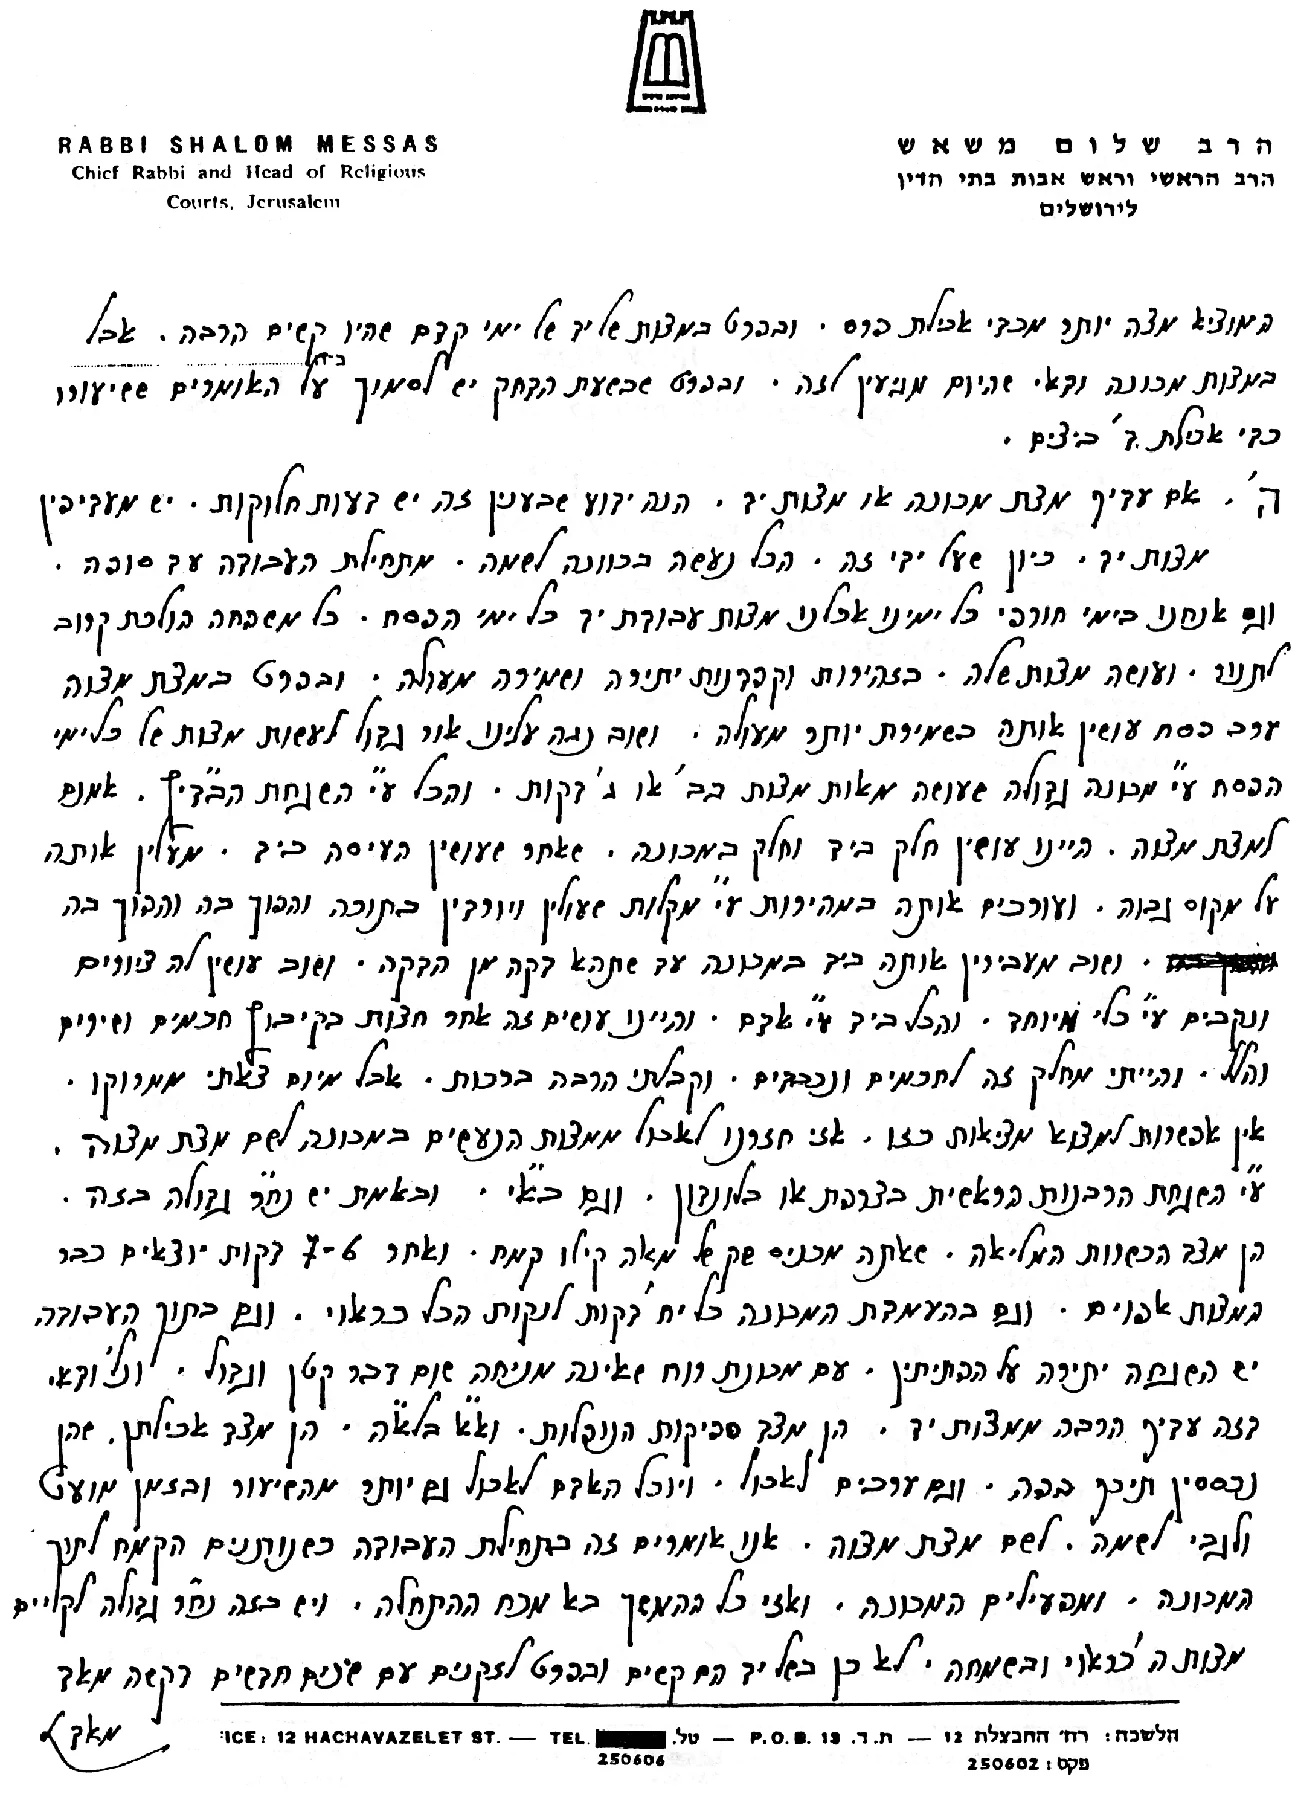 RABBI SHALOM MESSAS
Chief Rabbi and Head of Religious
Courts, Jerusalem
הרב שלום משאש
הרב הראשי וראש אבות בתי הדין
לירושלים
המוציא מצה יותר מכדי אכילת פרס. ובפרט במצות של יד של ימי קדם שהיו קשים הרבה. אבל
במצות מכונה ודאי שהיום מגיעין לזה. ובפרט שבשעת הדחק יש לסמוך על האומרים ששיעורו
כדי אכילת ד' ביצים.
ה'. אם עדיף מצת מכונה או מצות יד. הנה ידוע שבענין זה יש דעות חלוקות. יש מעדיפין
מצות יד. כיון שעל ידי זה. הכל נעשה בכוונה לשמה. מתחילת העבודה עד סופה.
וגם אנחנו בימי חורפי כל ימינו אכלנו מצות עבודת יד כל ימי הפסח. כל משפחה הולכת קרוב
לתנור. ועושה מצות שלה. בזהירות וקפדנות יתירה ושמירה מעולה. ובפרט במצת מצוה
ערב פסח עושין אותה בשמירת יותר מעולה. ושוב נגה עלינו אור גדול לעשות מצות של כל ימי
הפסח ע"י מכונה גדולה שעושה מאות מצות בב' או ג' דקות. והכל ע"י השגחת הבד"ץ. אמנם
למצת מצוה. היינו עושין חלק ביד וחלק במכונה. שאחר שעושין העיסה ביד. מעלין אותה
על מקום גבוה. ועורכים אותה במהירות ע"י מקלות שעולין ויורדין בתוכה והפוך בה והפוך בה
. ושוב מעבירין אותה ביד במכונה עד שתהא דקה מן הדקה. ושוב עושין לה ציורים
ונקבים ע"י כלי מיוחד. והכל ביד ע"י אדם. והיינו עושים זה אחר חצות בקיבוץ חכמים ושירים
והלל. והייתי מחלק זה לחכמים ונכבדים. וקבלתי הרבה ברכות. אבל מיום צאתי ממרוקו.
אין אפשרות למצוא מציאות כזו. אזי חזרנו לאכול ממצות הנעשים במכונה לשם מצת מצוה.
ע"י השגחת הרבנות הראשית בצרפת או בלונדון. וגם בא"י. ובאמת יש נח"ר גדולה בזה.
הן מצד הכשרות המליאה. שאתה מכניס שק של מאה קילו קמח. ואחר 7-6 דקות יוצאים כבר
המצות אפויים. וגם בהעמדת המכונה כל יח' דקות לנקות הכל כראוי. וגם בתוך העבודה
יש השגחה יתירה על הפתיתין. עם מכונת רוח שאינה מניחה שום דבר קטן וגדול. ולי ודאי
דזה עדיף הרבה ממצות יד. הן מצד ספיקות הנופלות. וא"א בלא"ה. הן מצד אכילתן. שהן
נכססין תיכף בפה. וגם ערבים לאכול. ויוכל האדם לאכול גם יותר מהשיעור ובזמן מועט
ולגבי לשמה. לשם מצת מצוה. אנו אומרים זה בתחילת העבודה כשנותנים הקמח לתוך
המכונה. ומפעילים המכונה. ואזי כל ההמשך בא מכח ההתחלה. ויש בזה נח"ר גדולה לקיים
מצות ה' כראוי ובשמחה. לא כן בשל יד הם קשים ובפרט לזקנים עם שנים חדשים דקשה מאד
מאד
ICE: 12 HACHAVAZELET ST. — TEL. טל. — P.O.B. 19 ת.ד. — הלשכה: רח' החבצלת 12
250606
פקס: 250602